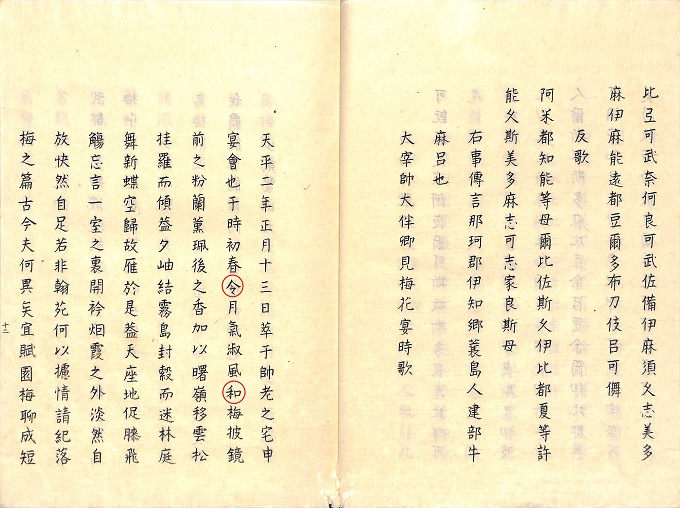 比呂可武奈何良可武佐備伊麻須久志美多
麻伊麻能遠都豆爾多布刀伎呂可儛
反歌
阿米都知能等母爾比佐斯久伊比都夏等許
能久斯美多麻志可志家良斯母
右事傳言那珂郡伊知鄉蓑島人建部牛
麻呂也
大宰帥大伴卿見梅花宴時歌
天平二年正月十三日萃于帥老之宅申
宴會也于時初春令月氣淑風和梅披鏡
前之粉蘭薫珮後之香加以曙嶺移雲松
挂羅而傾盖夕岫結霧鳥封縠而迷林庭
舞新蝶空歸故雁於是盖天座地促膝飛
觴忘言一室之裏開衿烟霞之外淡然自
放快然自足若非翰苑何以攄情請紀落
梅之篇古今夫何異矣宜賦園梅聊成短
十二